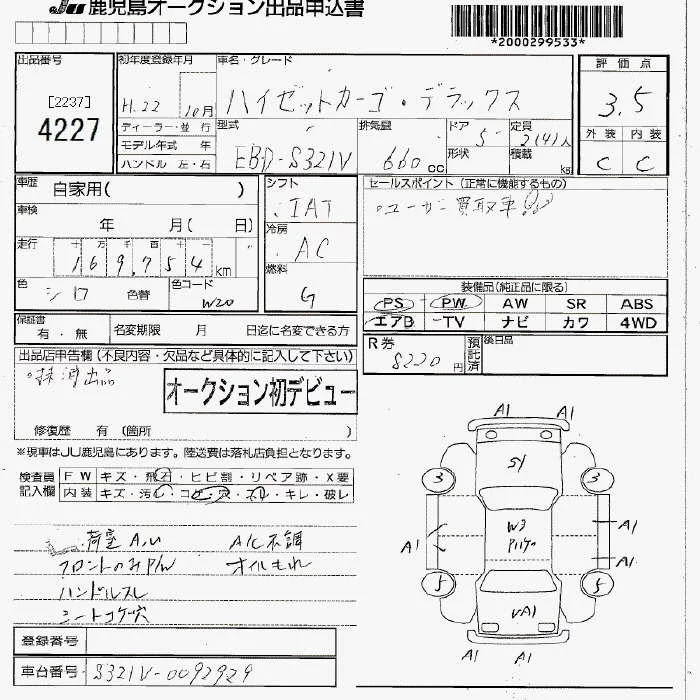 JU 鹿児島オークション出品申込書
*2000299533*
出品番号
[2237]
4227
初年度登録年月
H.22 10月
ディーラー・並 行
モデル年式 年
ハンドル 左・右
車名・グレード
ハイゼットカーゴ・デラックス
型式
EBD-S321V
排気量
660cc
ドア 5
形状
定員
2(4)人
積載 kg
評 価 点
3.5
外 装 内 装
C C
車歴 自家用( )
車検
年 月( 日)
走行 十 万 千 百 十
169,754 km
色 シロ 色替
色コード
W20
シフト
IAT
冷房
AC
燃料
G
セールスポイント (正常に機能するもの)
・ユーザー買取車!!
装備品(純正品に限る)
PS PW AW SR ABS
エアB TV ナビ カワ 4WD
保証書
有・無
名変期限 月 日迄に名変できる方
R券
8220円
預託済
後日品
出品店申告欄 (不良内容・欠品など具体的に記入して下さい)
抹消出品
オークション初デビュー
修復歴 有 (箇所 )
※現車はJU鹿児島にあります。陸送費は落札店負担となります。
検査員
記入欄
FW キズ・飛石・ヒビ割・リペア跡・X要
内装 キズ・汚れ・コゲ・穴・スレ・キレ・破レ
荷室A,U A/C不調
フロントのみP/W オイルもれ
ハンドルスレ
シートコゲ穴
A1 A1
SY
3 3
W3
A1 A1
A1
5 5
VA1
A1 A1
登録番号
車台番号 S321V-0092929